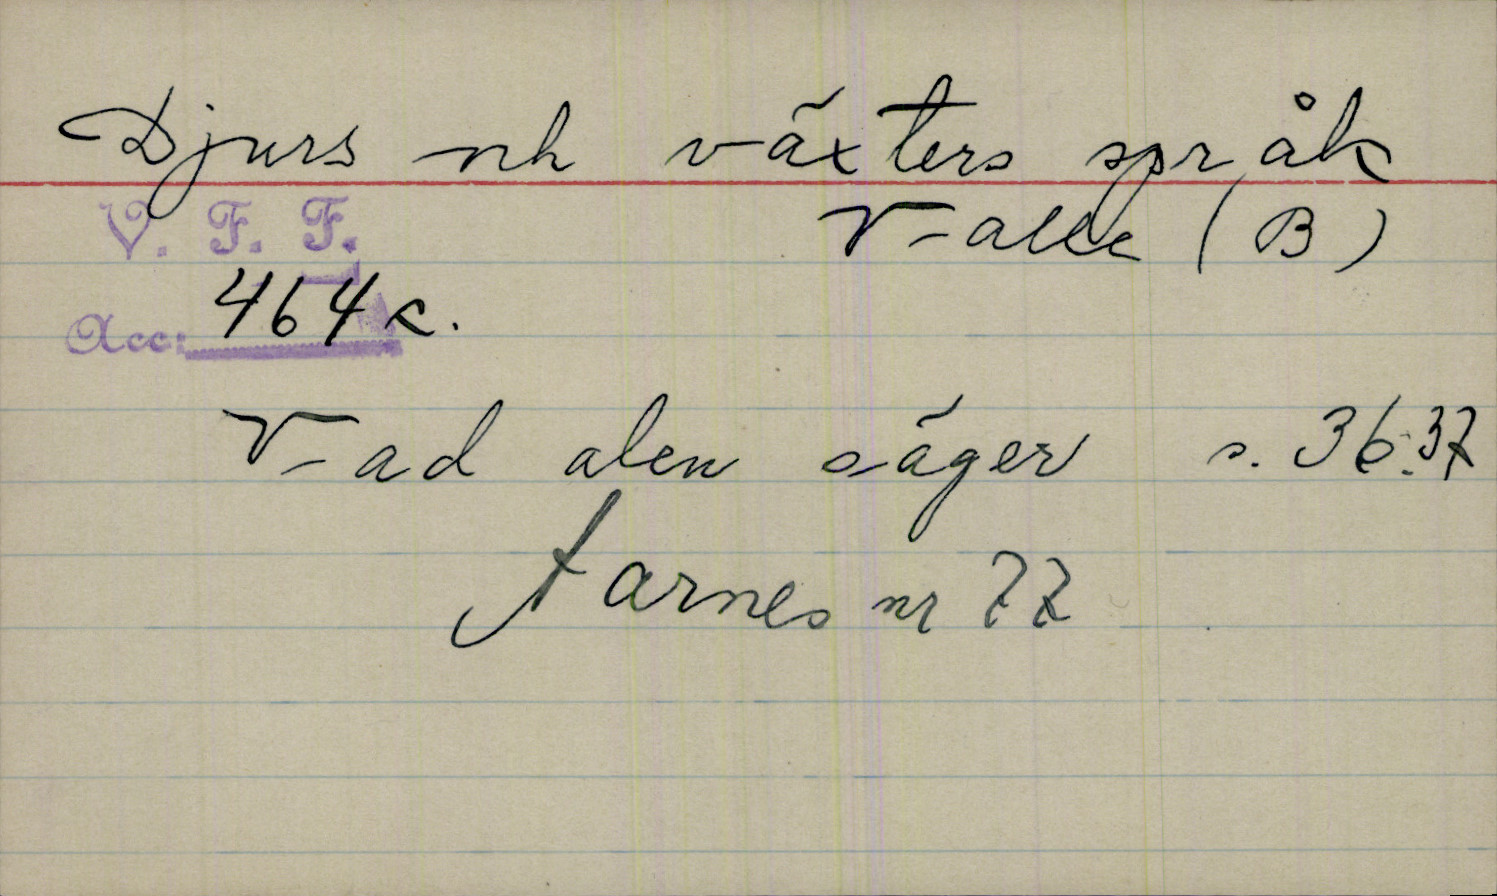 Djurs och växters språk
V. F. F. Valle (B)
Acc: 464 c.
Vad alen säger s. 36-37
Aarnes nr 77